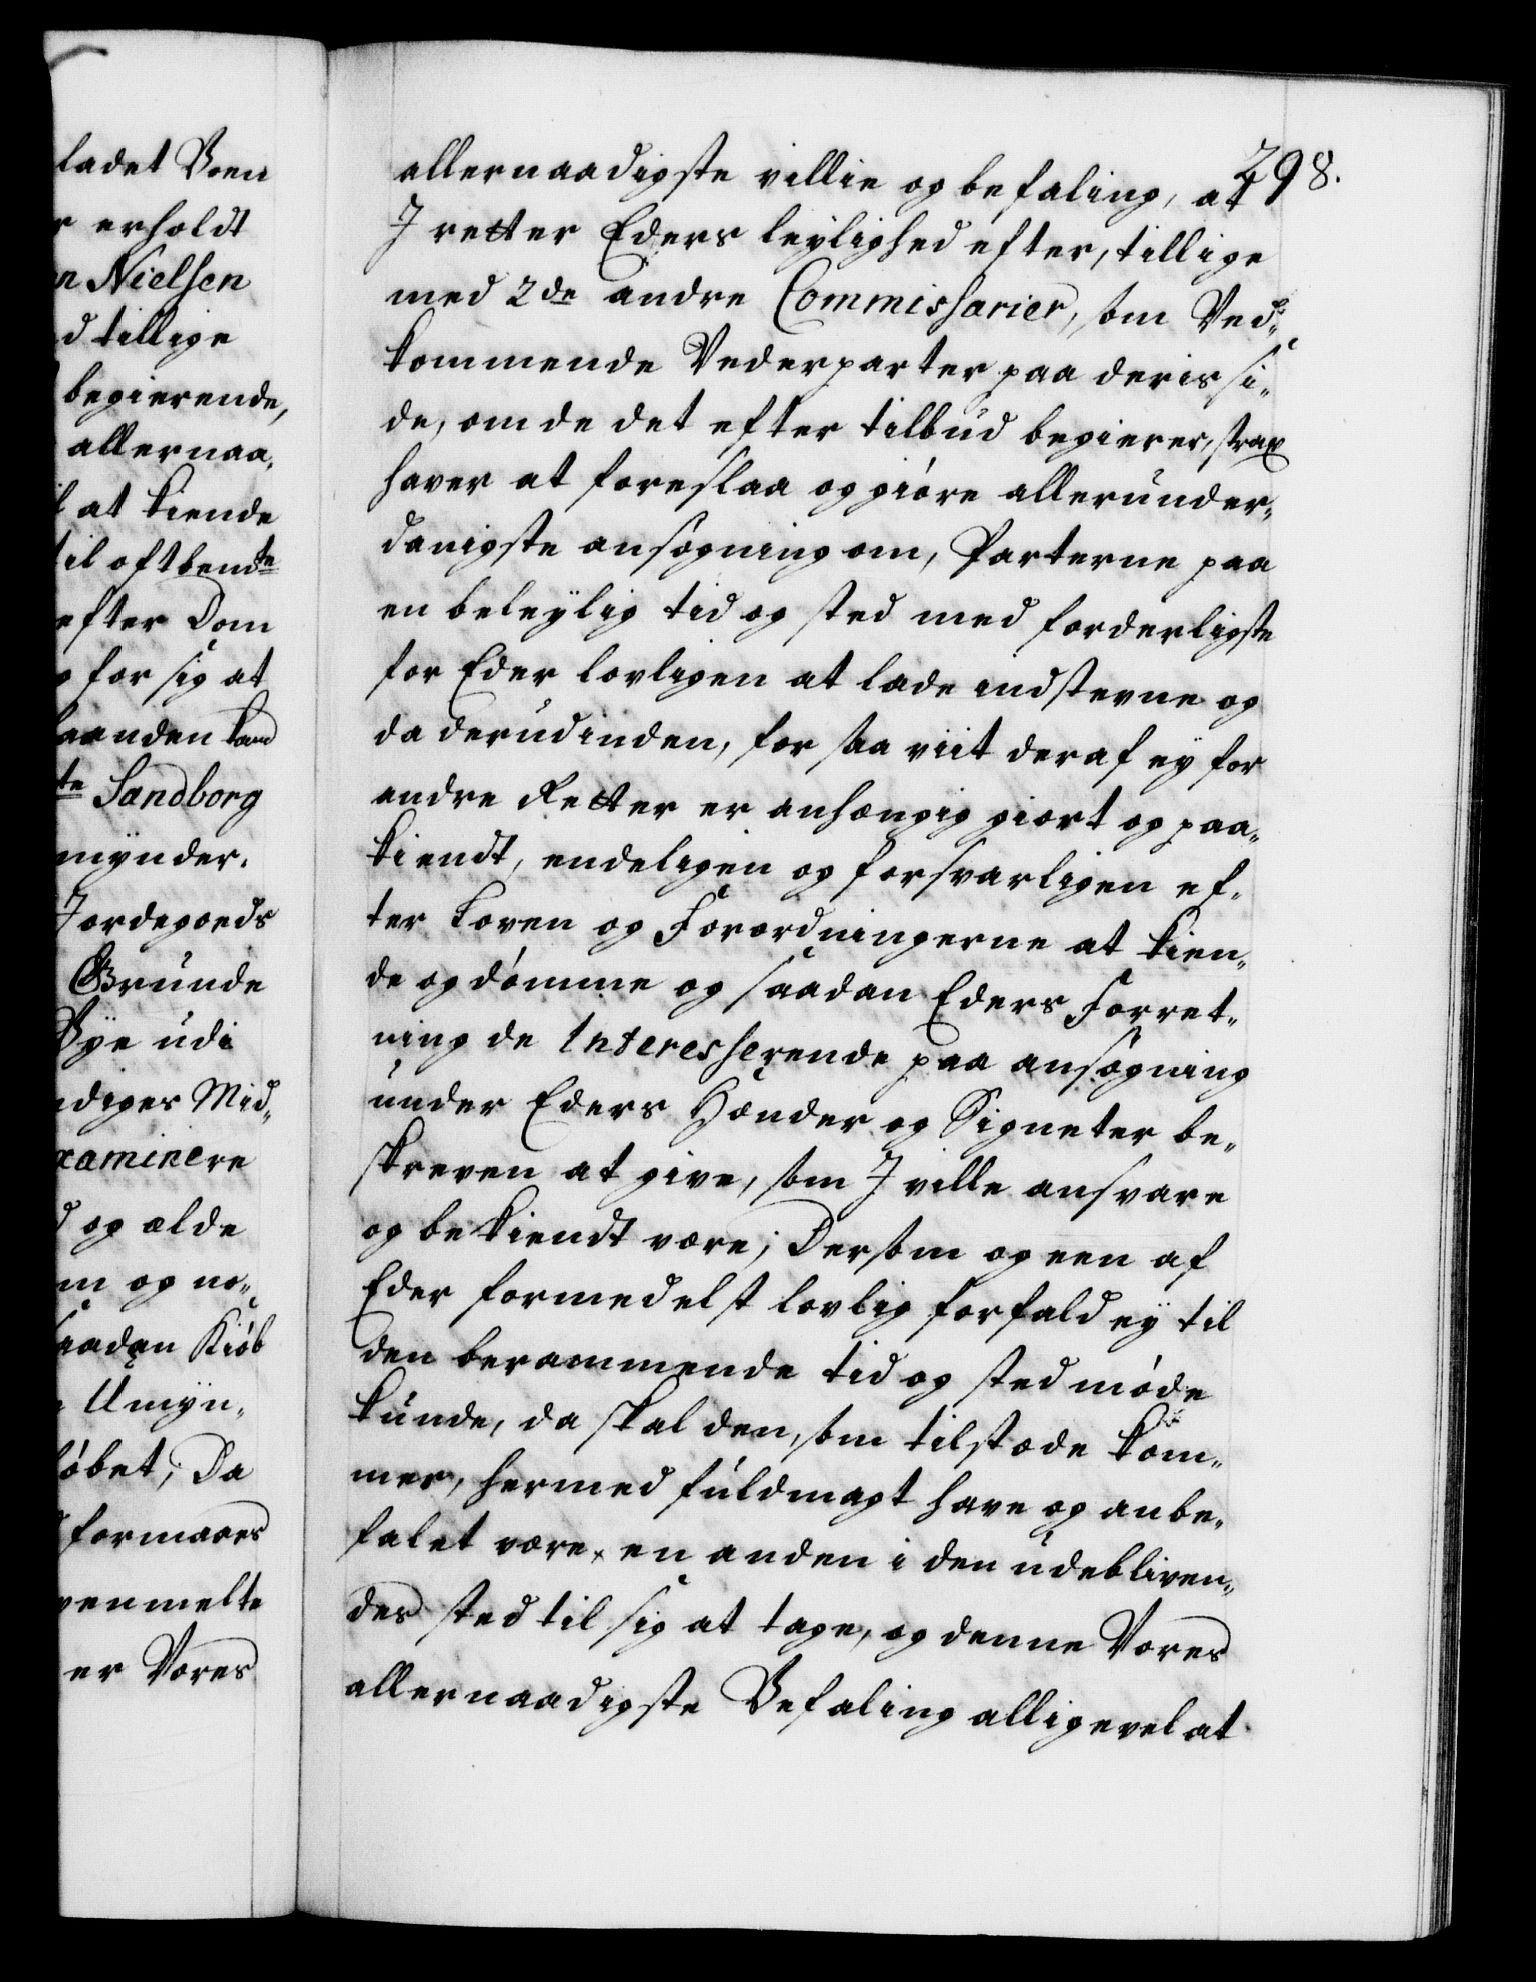 ladet Voen
r erholdt
n Nielsen
d tillige
begierende,
allernaa,
l at kiende
til oftbemte
efter Dom
g for sig at
aanden kand
te Sandborg
mynder,
Jordegoeds
Grunde
Bÿe udi
ndiges Mid„
xaminere
d og ælde
m og no„
saadan Kiöb
Umÿn„
löbet, Da
formaaes
venmelte
er Vores
298.
allernaadigste villie og befaling, at
J retter Eders leylighed efter, tillige
med 2de andre Commissarier, som Ved„
kommende Vederparter paa deris si„
de, om de det efter tilbud begierer, strax
haver at foreslaa og giöre allerunder„
danigste ansögning om, Parterne paa
en beleÿlig tid og sted med forderligste
for Eder lovligen at lade indstevne og
da derudinden, for saa viit deraf eÿ for
andre Retter er anhængig giort og paa„
kiendt, endeligen og forsvarligen ef„
ter Loven og Forordningerne at kien„
de og dömme og saadan Eders Forret„
ning de Interesserende paa ansögning
under Eders Hænder og Signeter be„
skreven at give, som J ville ansvare
og bekiendt være; Dersom og een af
Eder formedelst lovlig forfald eÿ til
den berammende tid og sted möde
kunde, da skal den, som tilstæde kom„
mer, hermed fuldmagt have og anbe„
falet være en anden i den udebliven„
des sted til sig at tage, og denne Vores
allernaadigste Befaling alligevel at